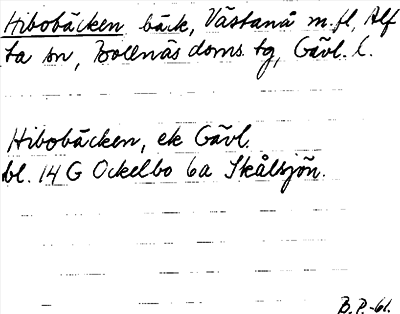 Hibobäcken bäck, Västanå m.fl, Alf
ta sn, Bollnäs doms. tg, Gävl. l.
Hibobäcken, ek Gävl.
bl. 14 G Ockelbo 6a Skålsjön.
B.P.-61.